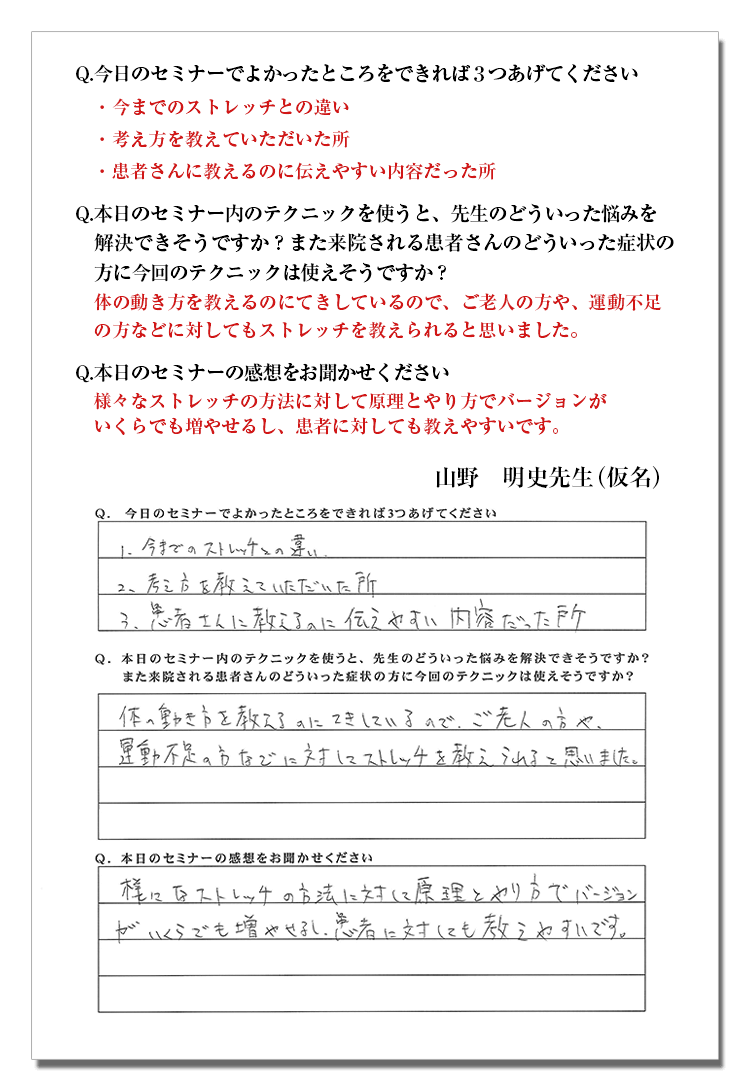 Q.今日のセミナーでよかったところをできれば３つあげてください
・今までのストレッチとの違い
・考え方を教えていただいた所
・患者さんに教えるのに伝えやすい内容だった所
Q.本日のセミナー内のテクニックを使うと、先生のどういった悩みを
解決できそうですか？また来院される患者さんのどういった症状の
方に今回のテクニックは使えそうですか？
体の動き方を教えるのにてきしているので、ご老人の方や、運動不足
の方などに対してもストレッチを教えられると思いました。
Q.本日のセミナーの感想をお聞かせください
様々なストレッチの方法に対して原理とやり方でバージョンが
いくらでも増やせるし、患者に対しても教えやすいです。
山野　明史先生（仮名）
Q. 今日のセミナーでよかったところをできれば3つあげてください
1. 今までのストレッチとの違い.
2. 考え方を教えていただいた所
3. 患者さんに教えるのに伝えやすい内容だった所
Q. 本日のセミナー内のテクニックを使うと、先生のどういった悩みを解決できそうですか？
また来院される患者さんのどういった症状の方に今回のテクニックは使えそうですか？
体の動き方を教えるのにてきしているので、ご老人の方や、
運動不足の方などに対してストレッチを教えられると思いました。
Q. 本日のセミナーの感想をお聞かせください
様々なストレッチの方法に対して原理とやり方でバージョン
がいくらでも増やせるし、患者に対しても教えやすいです。